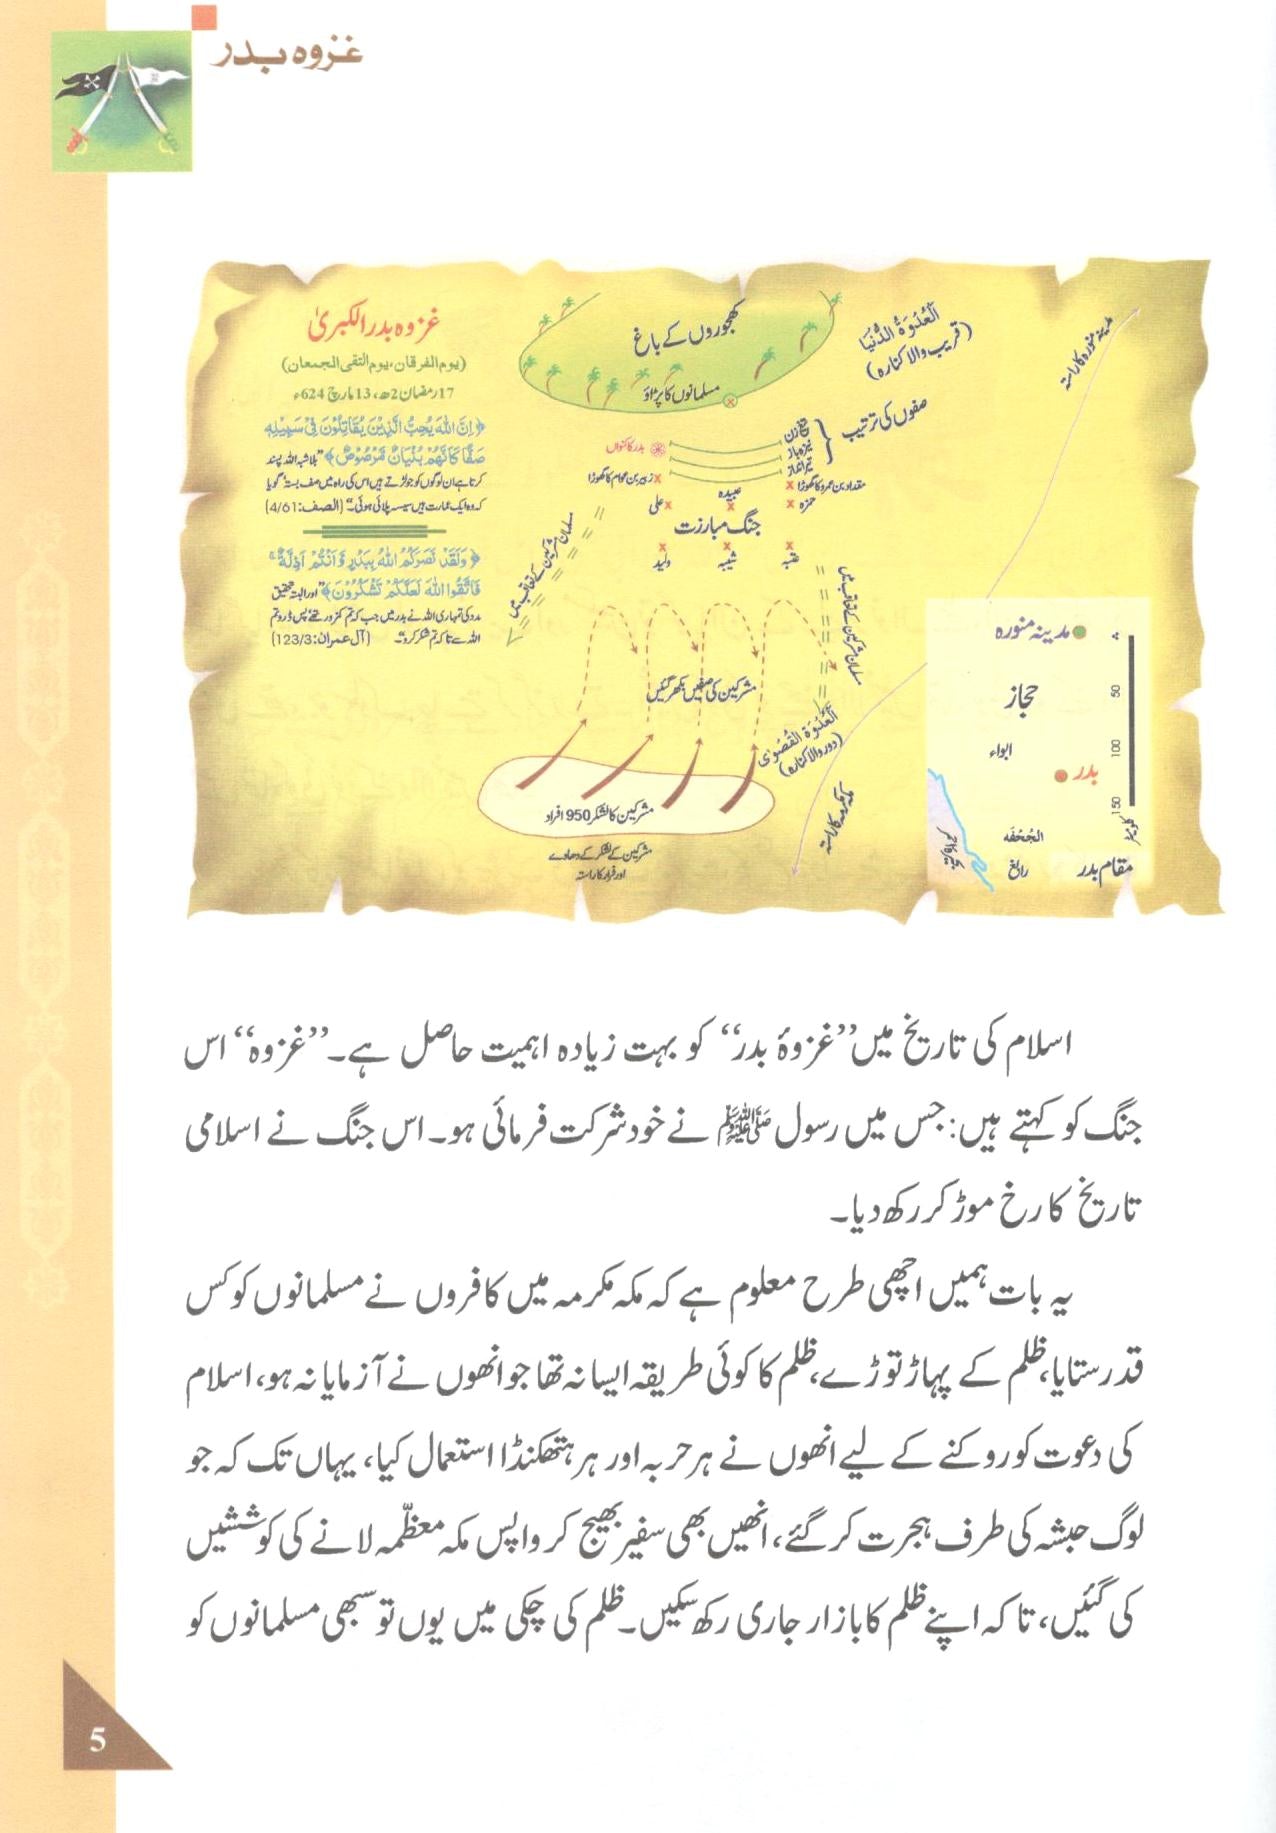 غزوہ بدر
غزوہ بدر الکبریٰ
(یوم الفرقان، یوم التقی الجمعان)
17 رمضان 2ھ، 13 مارچ 624ء
﴿اِنَّ اللّٰهَ يُحِبُّ الَّذِيْنَ يُقَاتِلُوْنَ فِيْ سَبِيْلِهٖ
صَفًّا كَاَنَّهُمْ بُنْيَانٌ مَّرْصُوْصٌ﴾ ”بلاشبہ اللہ پسند
کرتا ہے ان لوگوں کو جو لڑتے ہیں اس کی راہ میں صف بستہ گویا
کہ وہ ایک عمارت ہیں سیسہ پلائی ہوئی۔“ (الصف: 4/61)
﴿وَلَقَدْ نَصَرَكُمُ اللّٰهُ بِبَدْرٍ وَّاَنْتُمْ اَذِلَّةٌ ۚ
فَاتَّقُوا اللّٰهَ لَعَلَّكُمْ تَشْكُرُوْنَ﴾ ”اور البتہ تحقیق
مدد کی تمہاری اللہ نے بدر میں جب کہ تم کمزور تھے پس ڈرو تم
اللہ سے تاکہ تم شکر کرو۔“ (آل عمران: 123/3)
کھجوروں کے باغ
مسلمانوں کا پڑاؤ
اَلْعُدْوَةُ الدُّنْيَا
(قریب والا کنارہ)
مدینہ منورہ کا راستہ
صفوں کی ترتیب
تیغ زن
نیزہ باز
تیر انداز
بدر کا کنواں
زبیر بن عوام کا گھوڑا
مقداد بن عمرو کا گھوڑا
حمزہ
عبیدہ
علی
جنگ مبارزت
عتبہ
شیبہ
ولید
مسلمان مشرکین کے تعاقب میں
مسلمان مشرکین کے تعاقب میں
مشرکین کی صفیں بکھر گئیں
اَلْعُدْوَةُ الْقُصْوٰى
(دور والا کنارہ)
مکہ مکرمہ کا راستہ
مشرکین کا لشکر 950 افراد
مشرکین کے لشکر کے دھاوے
اور فرار کا راستہ
مدینہ منورہ
حجاز
ابواء
بدر
الجُحْفَه
رابغ
بحیرہ احمر
مقام بدر
50
100
150
کلومیٹر
اسلام کی تاریخ میں ”غزوۂ بدر“ کو بہت زیادہ اہمیت حاصل ہے۔ ”غزوہ“ اس
جنگ کو کہتے ہیں: جس میں رسول ﷺ نے خود شرکت فرمائی ہو۔ اس جنگ نے اسلامی
تاریخ کا رخ موڑ کر رکھ دیا۔
یہ بات ہمیں اچھی طرح معلوم ہے کہ مکہ مکرمہ میں کافروں نے مسلمانوں کو کس
قدر ستایا، ظلم کے پہاڑ توڑے، ظلم کا کوئی طریقہ ایسا نہ تھا جو انھوں نے آزمایا نہ ہو، اسلام
کی دعوت کو روکنے کے لیے انھوں نے ہر حربہ اور ہر ہتھکنڈا استعمال کیا، یہاں تک کہ جو
لوگ حبشہ کی طرف ہجرت کر گئے، انھیں بھی سفیر بھیج کر واپس مکہ معظّمہ لانے کی کوششیں
کی گئیں، تاکہ اپنے ظلم کا بازار جاری رکھ سکیں۔ ظلم کی چکی میں یوں تو سبھی مسلمانوں کو
5